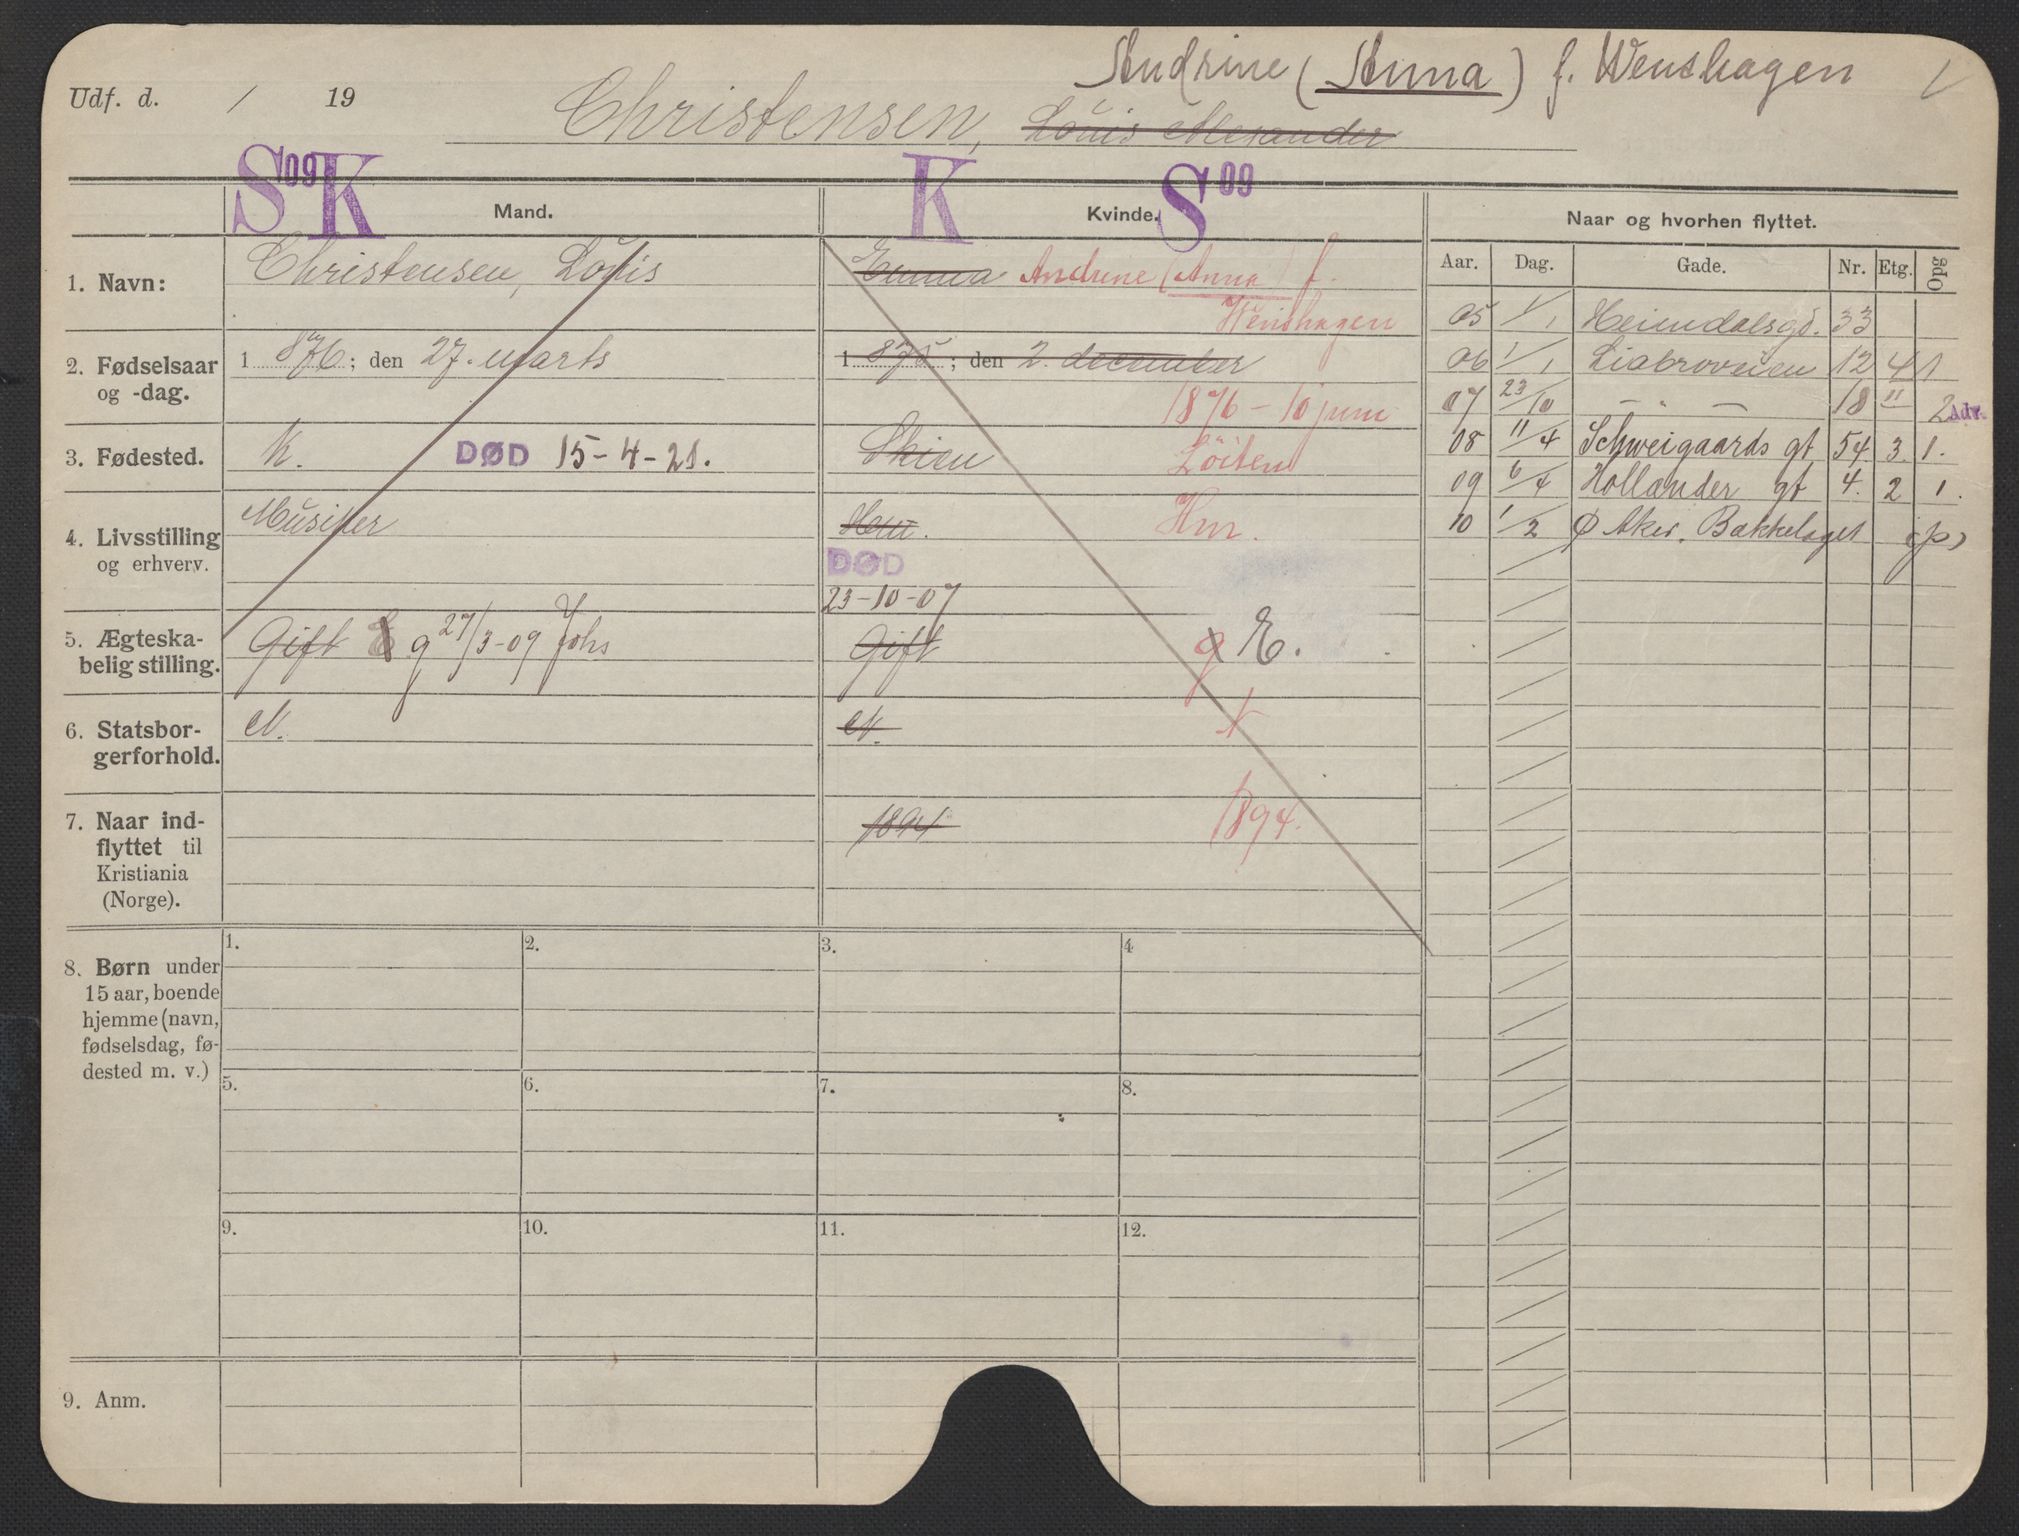 Andrine (Anna) f. Wenshagen
Udf. d. / 19
Christensen, Louis Alexander
S 09 K K S 09
Mand. Kvinde. Naar og hvorhen flyttet.
Aar. Dag. Gade. Nr. Etg. Opg
1. Navn: Christensen, Louis Emma Andrine (Anna) f.
Wenshagen
2. Fødselsaar og -dag. 1 876; den 27. marts 1 875; den 2. december
1876 - 10 juni
3. Fødested. K. DØD 15-4-21. Skien Löiten
4. Livsstilling og erhverv. Musiker Hm. Hm.
DØD
23-10-07
5. Ægteska-
belig stilling. Gift E g 27/3-09 Johs Gift g E.
6. Statsbor-
gerforhold. N. N.
7. Naar ind-
flyttet til
Kristiania
(Norge). 1894 1894.
05 1/1 Heimdalsgd. 33
06 1/1 Liabroveien 12 4 1
07 23/10 — " — 18 " 2 Adr.
08 11/4 Schweigaards gt 54. 3. 1.
09 6/4 Hollander gt 4. 2 1.
10 1/2 Ø Aker. Bakkelaget (p)
8. Børn under
15 aar, boende
hjemme (navn,
fødselsdag, fø-
dested m. v.)
1. 2. 3. 4
5. 6. 7. 8.
9. 10. 11. 12.
9. Anm.